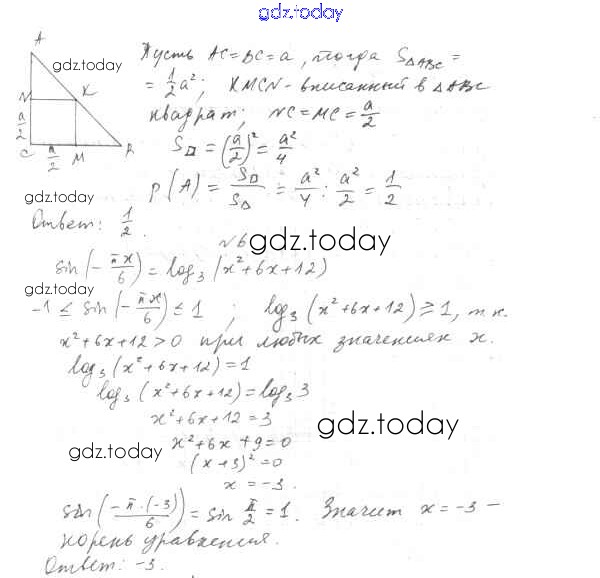 gdz.today
A
Пусть AC=BC=a, тогда S△ABC =
gdz.today
= 1/2 a²; KMCN - вписанный в △ABC
N K
квадрат; NC=MC= a/2
a/2
S□ = (a/2)² = a²/4
C a/2 M B
P(A) = S□/S△ = a²/4 : a²/2 = 1/2
gdz.today
Ответ: 1/2.
№6
gdz.today
sin(-πx/6) = log₃(x²+6x+12)
gdz.today
-1 ≤ sin(-πx/6) ≤ 1 ; log₃(x²+6x+12) ≥ 1, т.к.
x²+6x+12>0 при любых значениях x.
log₃(x²+6x+12)=1
log₃(x²+6x+12)=log₃3
x²+6x+12=3
gdz.today
x²+6x+9=0
gdz.today
(x+3)²=0
x=-3.
sin(-π·(-3)/6) = sin π/2 = 1. Значит x=-3 -
корень уравнения.
Ответ: -3.
gdz.today